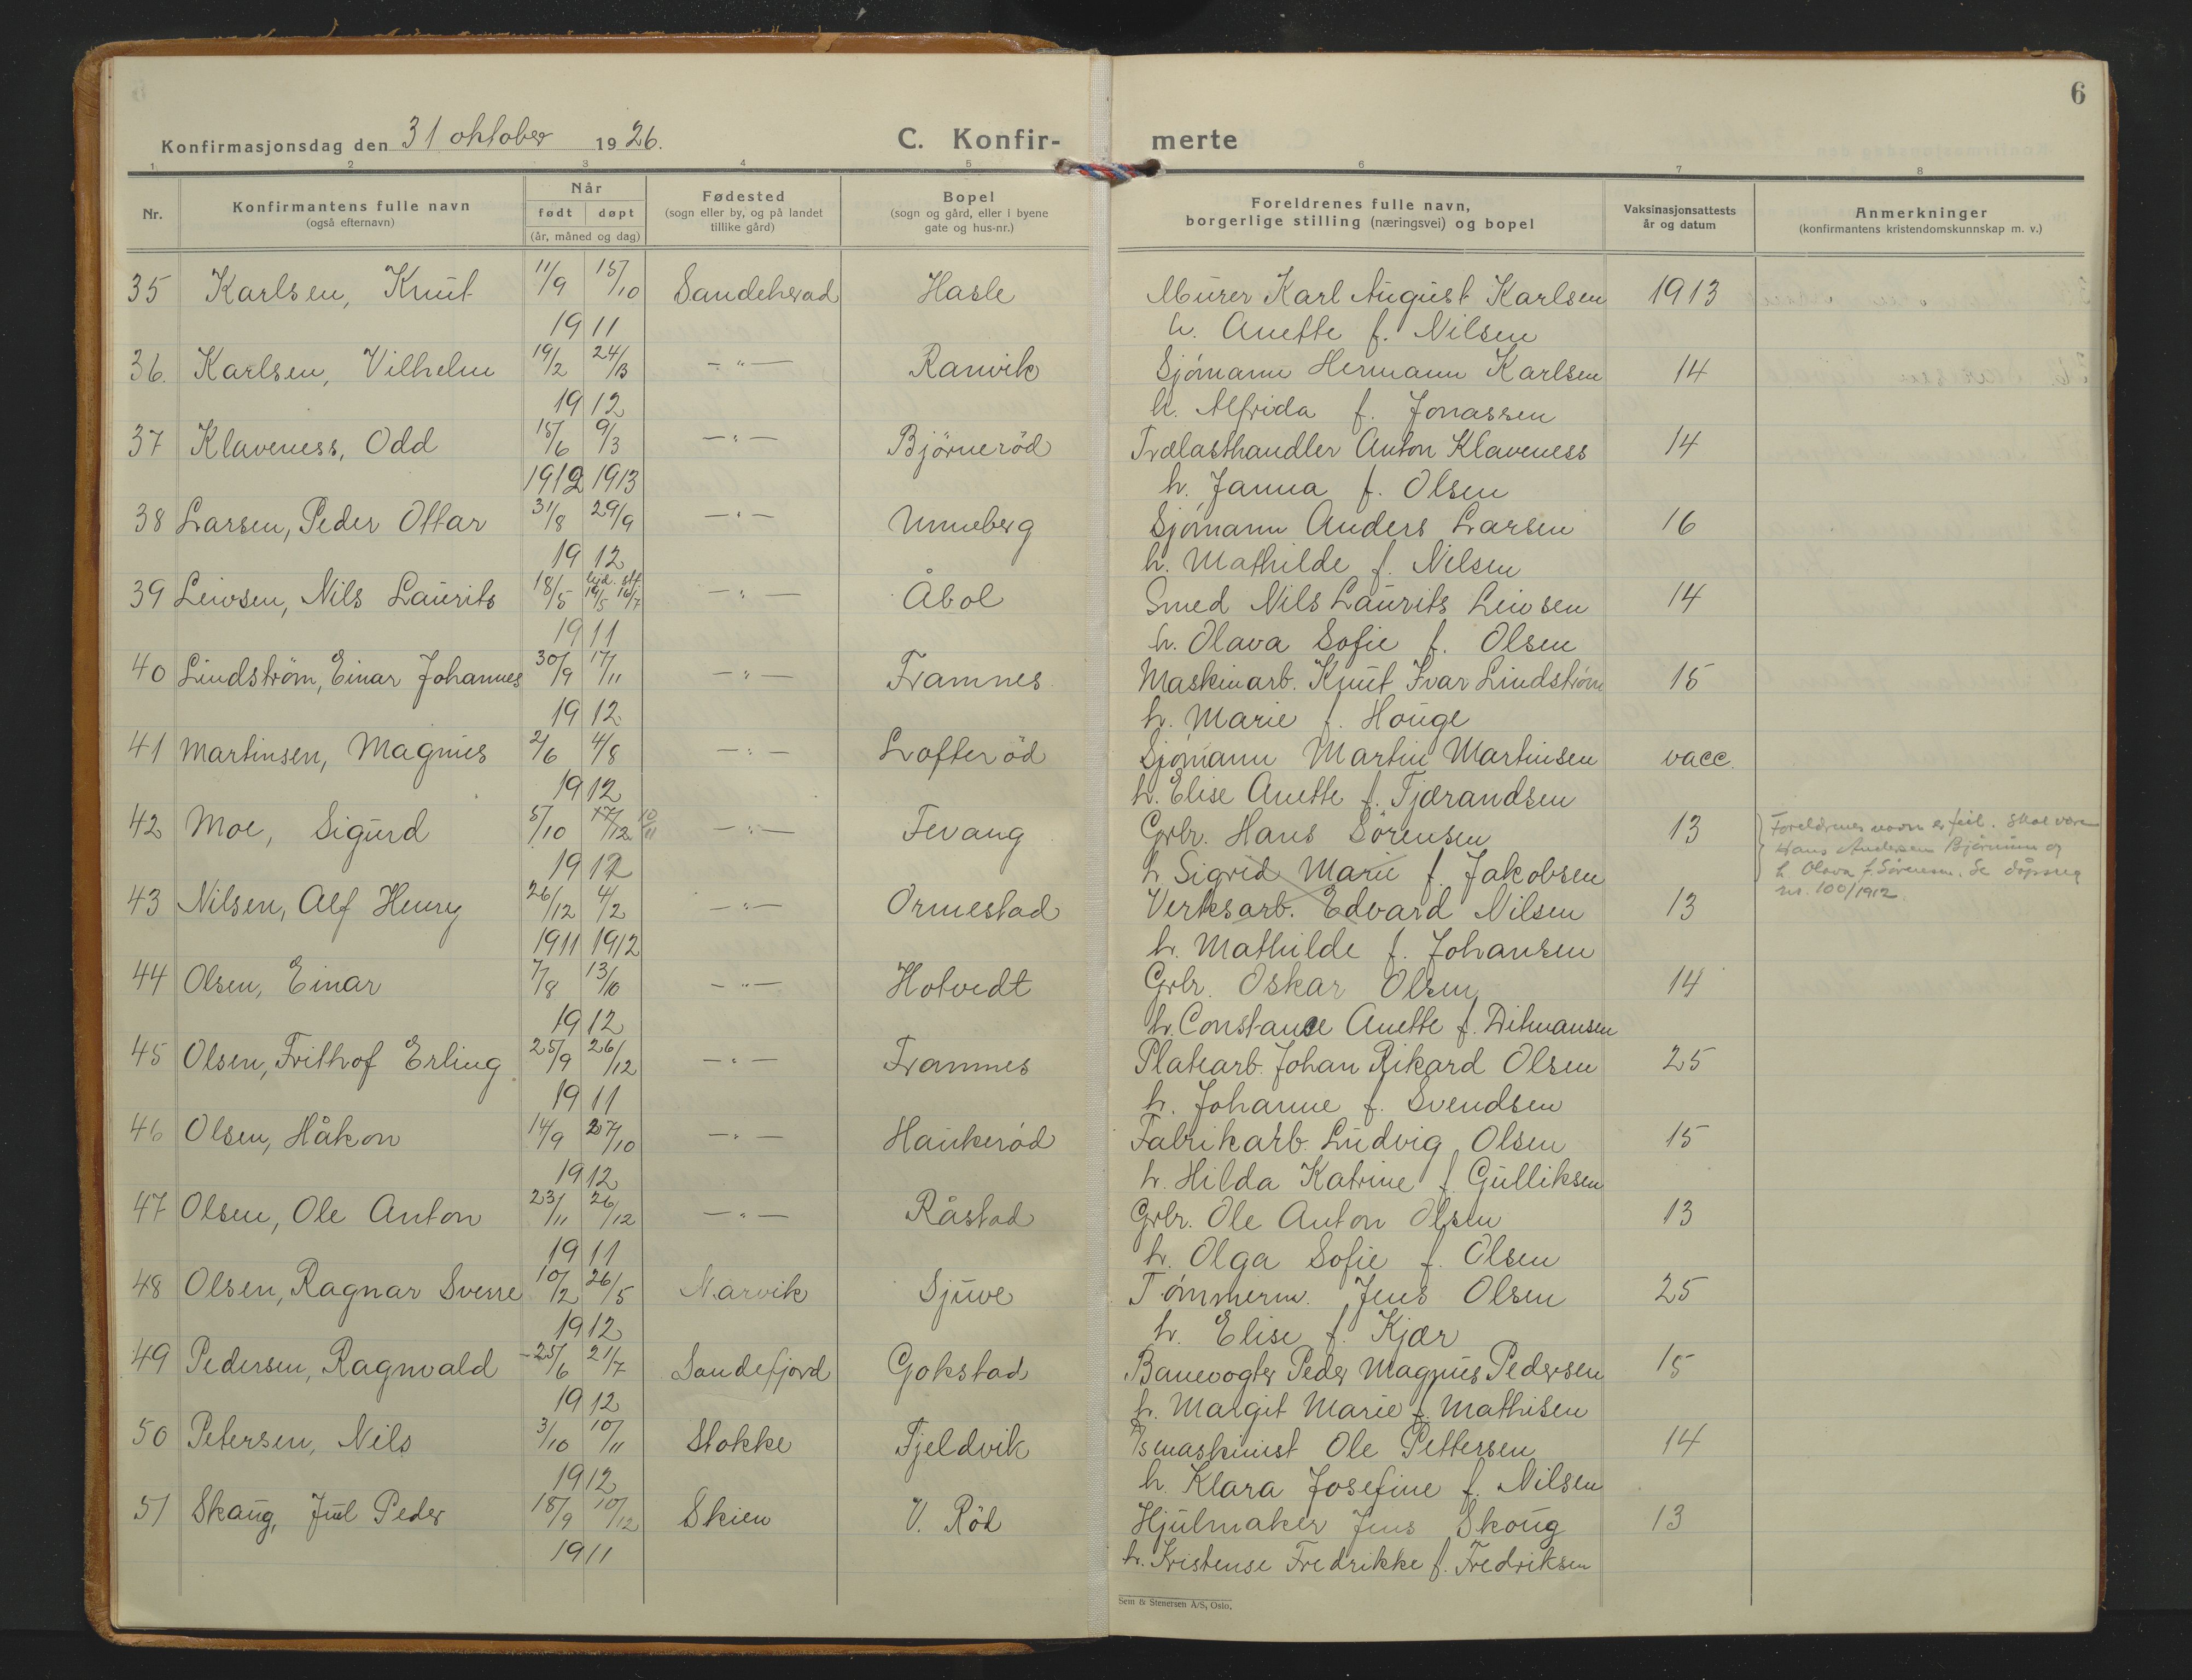 6
Konfirmasjonsdag den 31 oktober 1926.
C. Konfir- merte
1 2 3 4 5 6 7 8
Nr.
Konfirmantens fulle navn
(også efternavn)
Når
født døpt
(år, måned og dag)
Fødested
(sogn eller by, og på landet
tillike gård)
Bopel
(sogn og gård, eller i byene
gate og hus-nr.)
Foreldrenes fulle navn,
borgerlige stilling (næringsvei) og bopel
Vaksinasjonsattests
år og datum
Anmerkninger
(konfirmantens kristendomskunnskap m. v.)
35 Karlsen, Knut 11/9 15/10 Sandeherad Hasle Murer Karl August Karlsen 1913
1911 h. Anette f. Nilsen
36. Karlsen, Vilhelm 19/2 24/3 - " - Ranvik Sjømann Hermann Karlsen 14
1912 h. Alfrida f. Jonassen
37 Klaveness, Odd 15/6 9/3 - " - Björneröd Trælasthandler Anton Klaveness 14
1912 1913 h. Janna f. Olsen
38 Larsen, Peder Ottar 31/8 29/9 - " - Unneberg Sjømann Anders Larsen 16
1912 h. Mathilde f. Nilsen
39 Leivsen, Nils Laurits 18/5 hjd. 19/5 stf. 16/7 - " - Åbol Smed Nils Laurits Leivsen 14
1911 h. Olava Sofie f. Olsen
40 Lindström, Einar Johannes 30/9 17/11 - " - Framnes Maskinarb. Knut Ivar Lindstrøm 15
1912 h. Marie f. Houge
41 Martinsen, Magnus 2/6 4/8 - " - Lofteröd Sjømann Martin Martinsen vacc.
1912 h. Elise Anette f. Tjærandsen
42 Moe, Sigurd 5/10 17/12 10/11 - " - Fevang Grbr. Hans Sörensen 13 Foreldrenes navn er feil. Skal være
Hans Andersen Bjørnum og
1912 h. Sigrid Marie f. Jakobsen h. Olava f. Sörensen. Se dåpsreg
nr. 100/1912.
43 Nilsen, Alf Henry 26/12 4/2 - " - Ormestad Verksarb. Edvard Nilsen 13
1911 1912 h. Mathilde f. Johansen
44 Olsen, Einar 7/8 13/10 - " - Hotvedt Grbr. Oskar Olsen 14
1912 h. Constance Anette f. Ditmansen
45 Olsen, Frithof Erling 25/9 26/12 - " - Framnes Platearb. Johan Rikard Olsen 25
1911 h. Johanne f. Svendsen
46 Olsen, Håkon 14/9 27/10 - " - Haukeröd Fabrikarb. Ludvig Olsen 15
1912 h. Hilda Katrine f. Gulliksen
47 Olsen, Ole Anton 23/11 26/12 - " - Råstad Grbr. Ole Anton Olsen 13
1911 h. Olga Sofie f. Olsen
48 Olsen, Ragnar Sverre 10/2 26/5 Narvik Sjuve Tømmerm. Jens Olsen 25
1912 h. Elise f. Kjær
49 Pedersen, Ragnvald 25/6 21/7 Sandefjord Gokstad Banevogter Peder Magnus Pedersen 15
1912 h. Margit Marie f. Mathisen
50 Petersen, Nils 3/10 10/11 Stokke Fjeldvik Ismaskinist Ole Pettersen 14
1912 h. Klara Josefine f. Nilsen
51 Skaug, Juel Peder 18/9 10/12 Skien V. Röd Hjulmaker Jens Skoug 13
1911 h. Kristense Fredrikke f. Fredriksen
Sem & Stenersen A/S, Oslo.